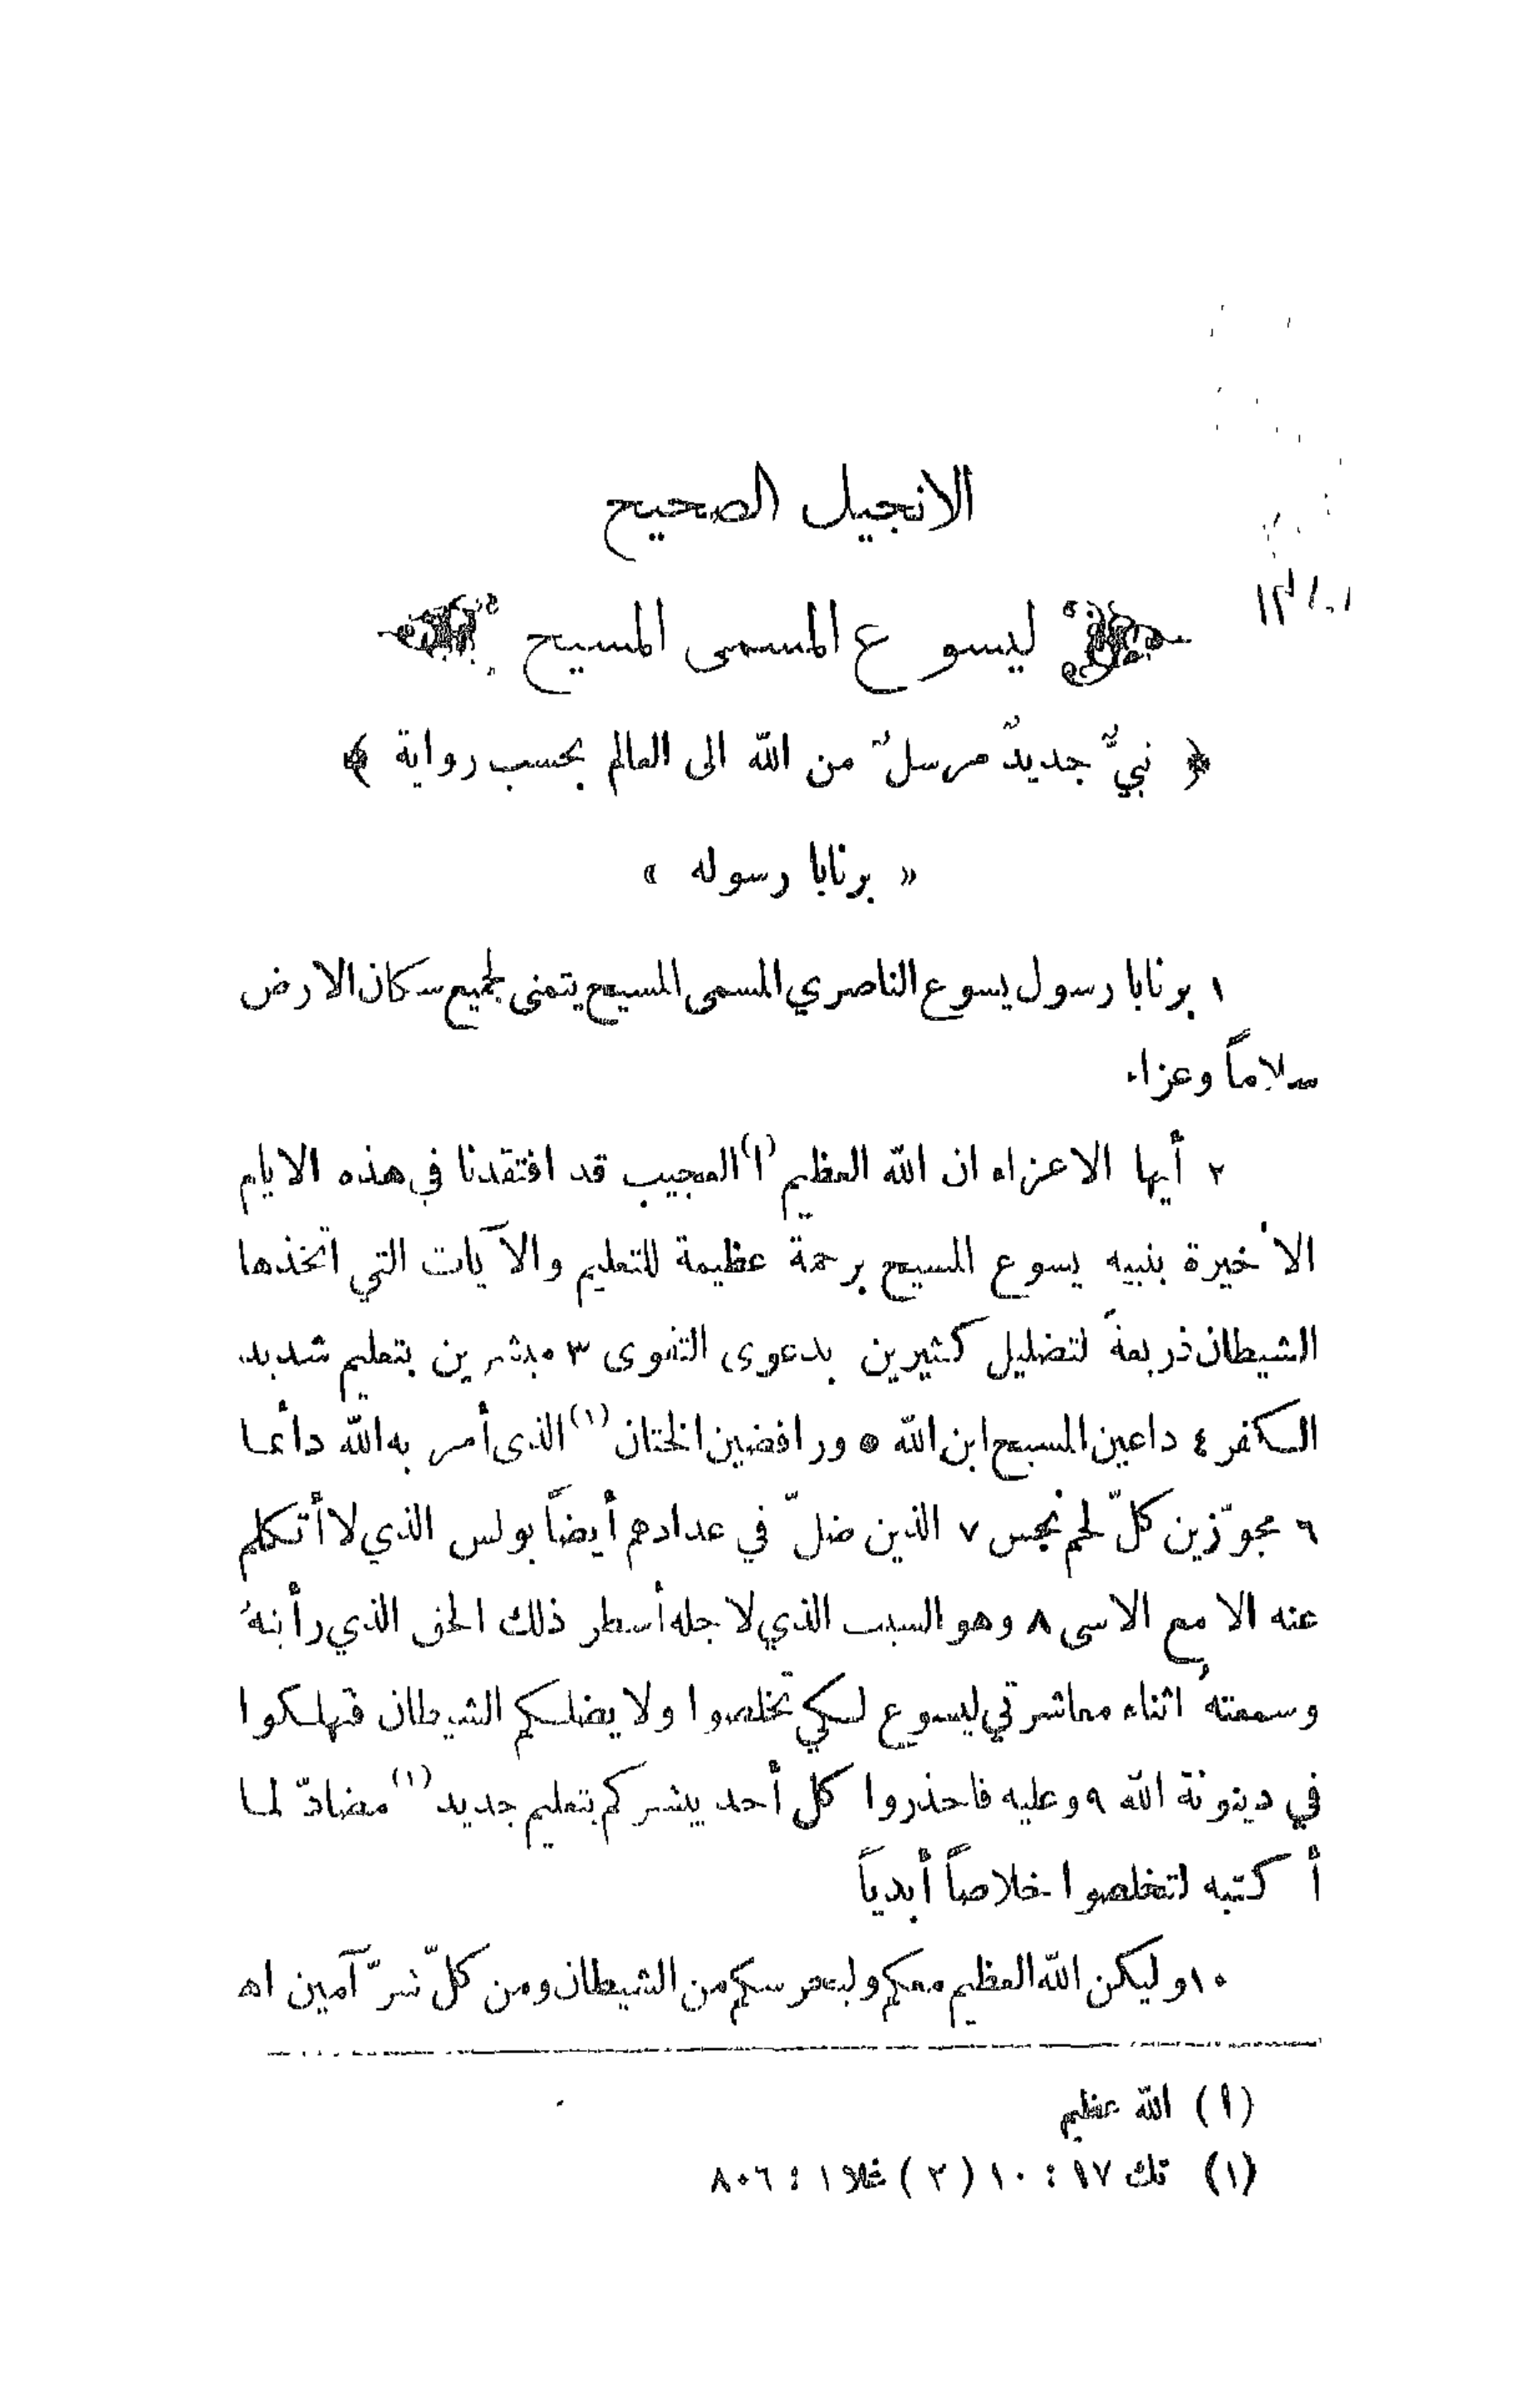 الانجيل الصحيح
ليسوع المسمى المسيح
﴿ نبيٌّ جديدٌ مرسلٌ من الله الى العالم بحسب رواية ﴾
« برنابا رسوله »
١ برنابا رسول يسوع الناصري المسمى المسيح يتمنى لجميع سكان الارض
سلاماً وعزاء
٢ أيها الاعزاء ان الله العظيم (ا) العجيب قد افتقدنا في هذه الايام
الاخيرة بنبيه يسوع المسيح برحمة عظيمة للتعليم والآيات التي اتخذها
الشيطان ذريعة لتضليل كثيرين بدعوى التقوى ٣ مبشرين بتعليم شديد
الكفر ٤ داعين المسيح ابن الله ٥ ورافضين الختان (١) الذى أمر به الله دائما
٦ مجوّزين كلّ لحم نجس ٧ الذين ضلّ في عدادهم أيضاً بولس الذي لا أتكلم
عنه الا مع الاسى ٨ وهو السبب الذي لاجله أسطر ذلك الحق الذي رأيتهُ
وسمعتهُ اثناء معاشرتي ليسوع لكي تخلصوا ولا يضلكم الشيطان فتهلكوا
في دينونة الله ٩ وعليه فاحذروا كل أحد يبشركم بتعليم جديد (١) مضادّ لما
أكتبه لتخلصوا خلاصاً أبدياً
١٠ وليكن الله العظيم معكم وليحرسكم من الشيطان ومن كلّ شرّ آمين اه
(أ) الله عظيم
(١) تك ١٧ : ١٠ (٢) غلا ١ : ٦ و ٨